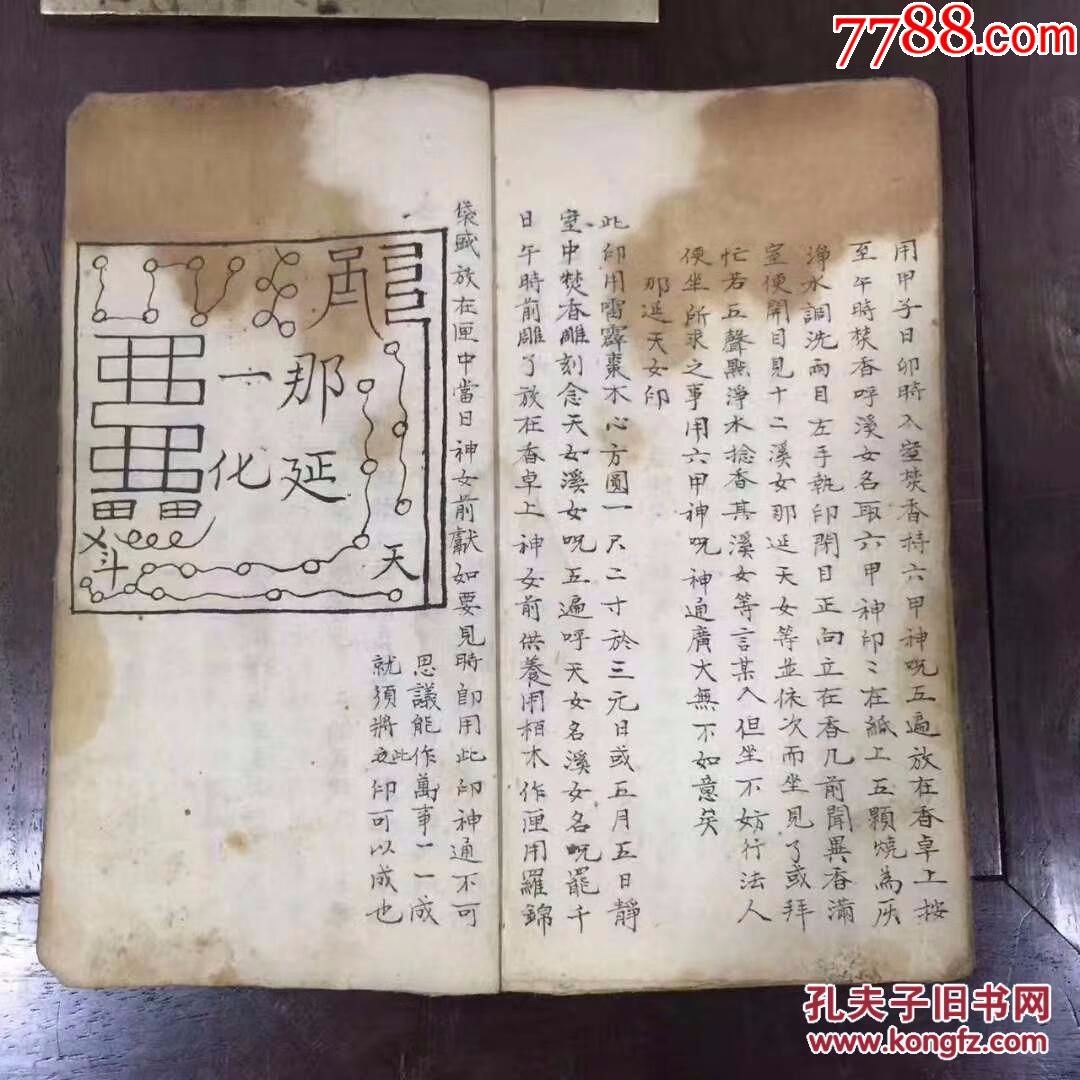 7788.com
用甲子日卯時入室焚香持六甲神呪五遍放在香卓上按
至午時焚香呼溪女名取六甲神印〻在紙上五顆燒為灰
淨水調洗兩目左手執印閉目正向立在香几前聞異香滿
室便開目見十二溪女那延天女等並依次而坐見了或拜
忙若五聲點淨水捻香其溪女等言某入但坐不妨行法人
便坐所求之事用六甲神呪神通廣大無不如意矣
那延天女印
此印用雷霹棗木心方圓一尺二寸於三元日或五月五日靜
室中焚香雕刻念天女溪女呪五遍呼天女名溪女名呪罷千
日午時前雕了放在香卓上神女前供養用栢木作匣用羅錦
袋盛放在匣中當日神女前獻如要見時即用此印神通不可
思議能作萬事一一成
就須將此印可以成也
那延
一化
天
斗
孔夫子旧书网
www.kongfz.com